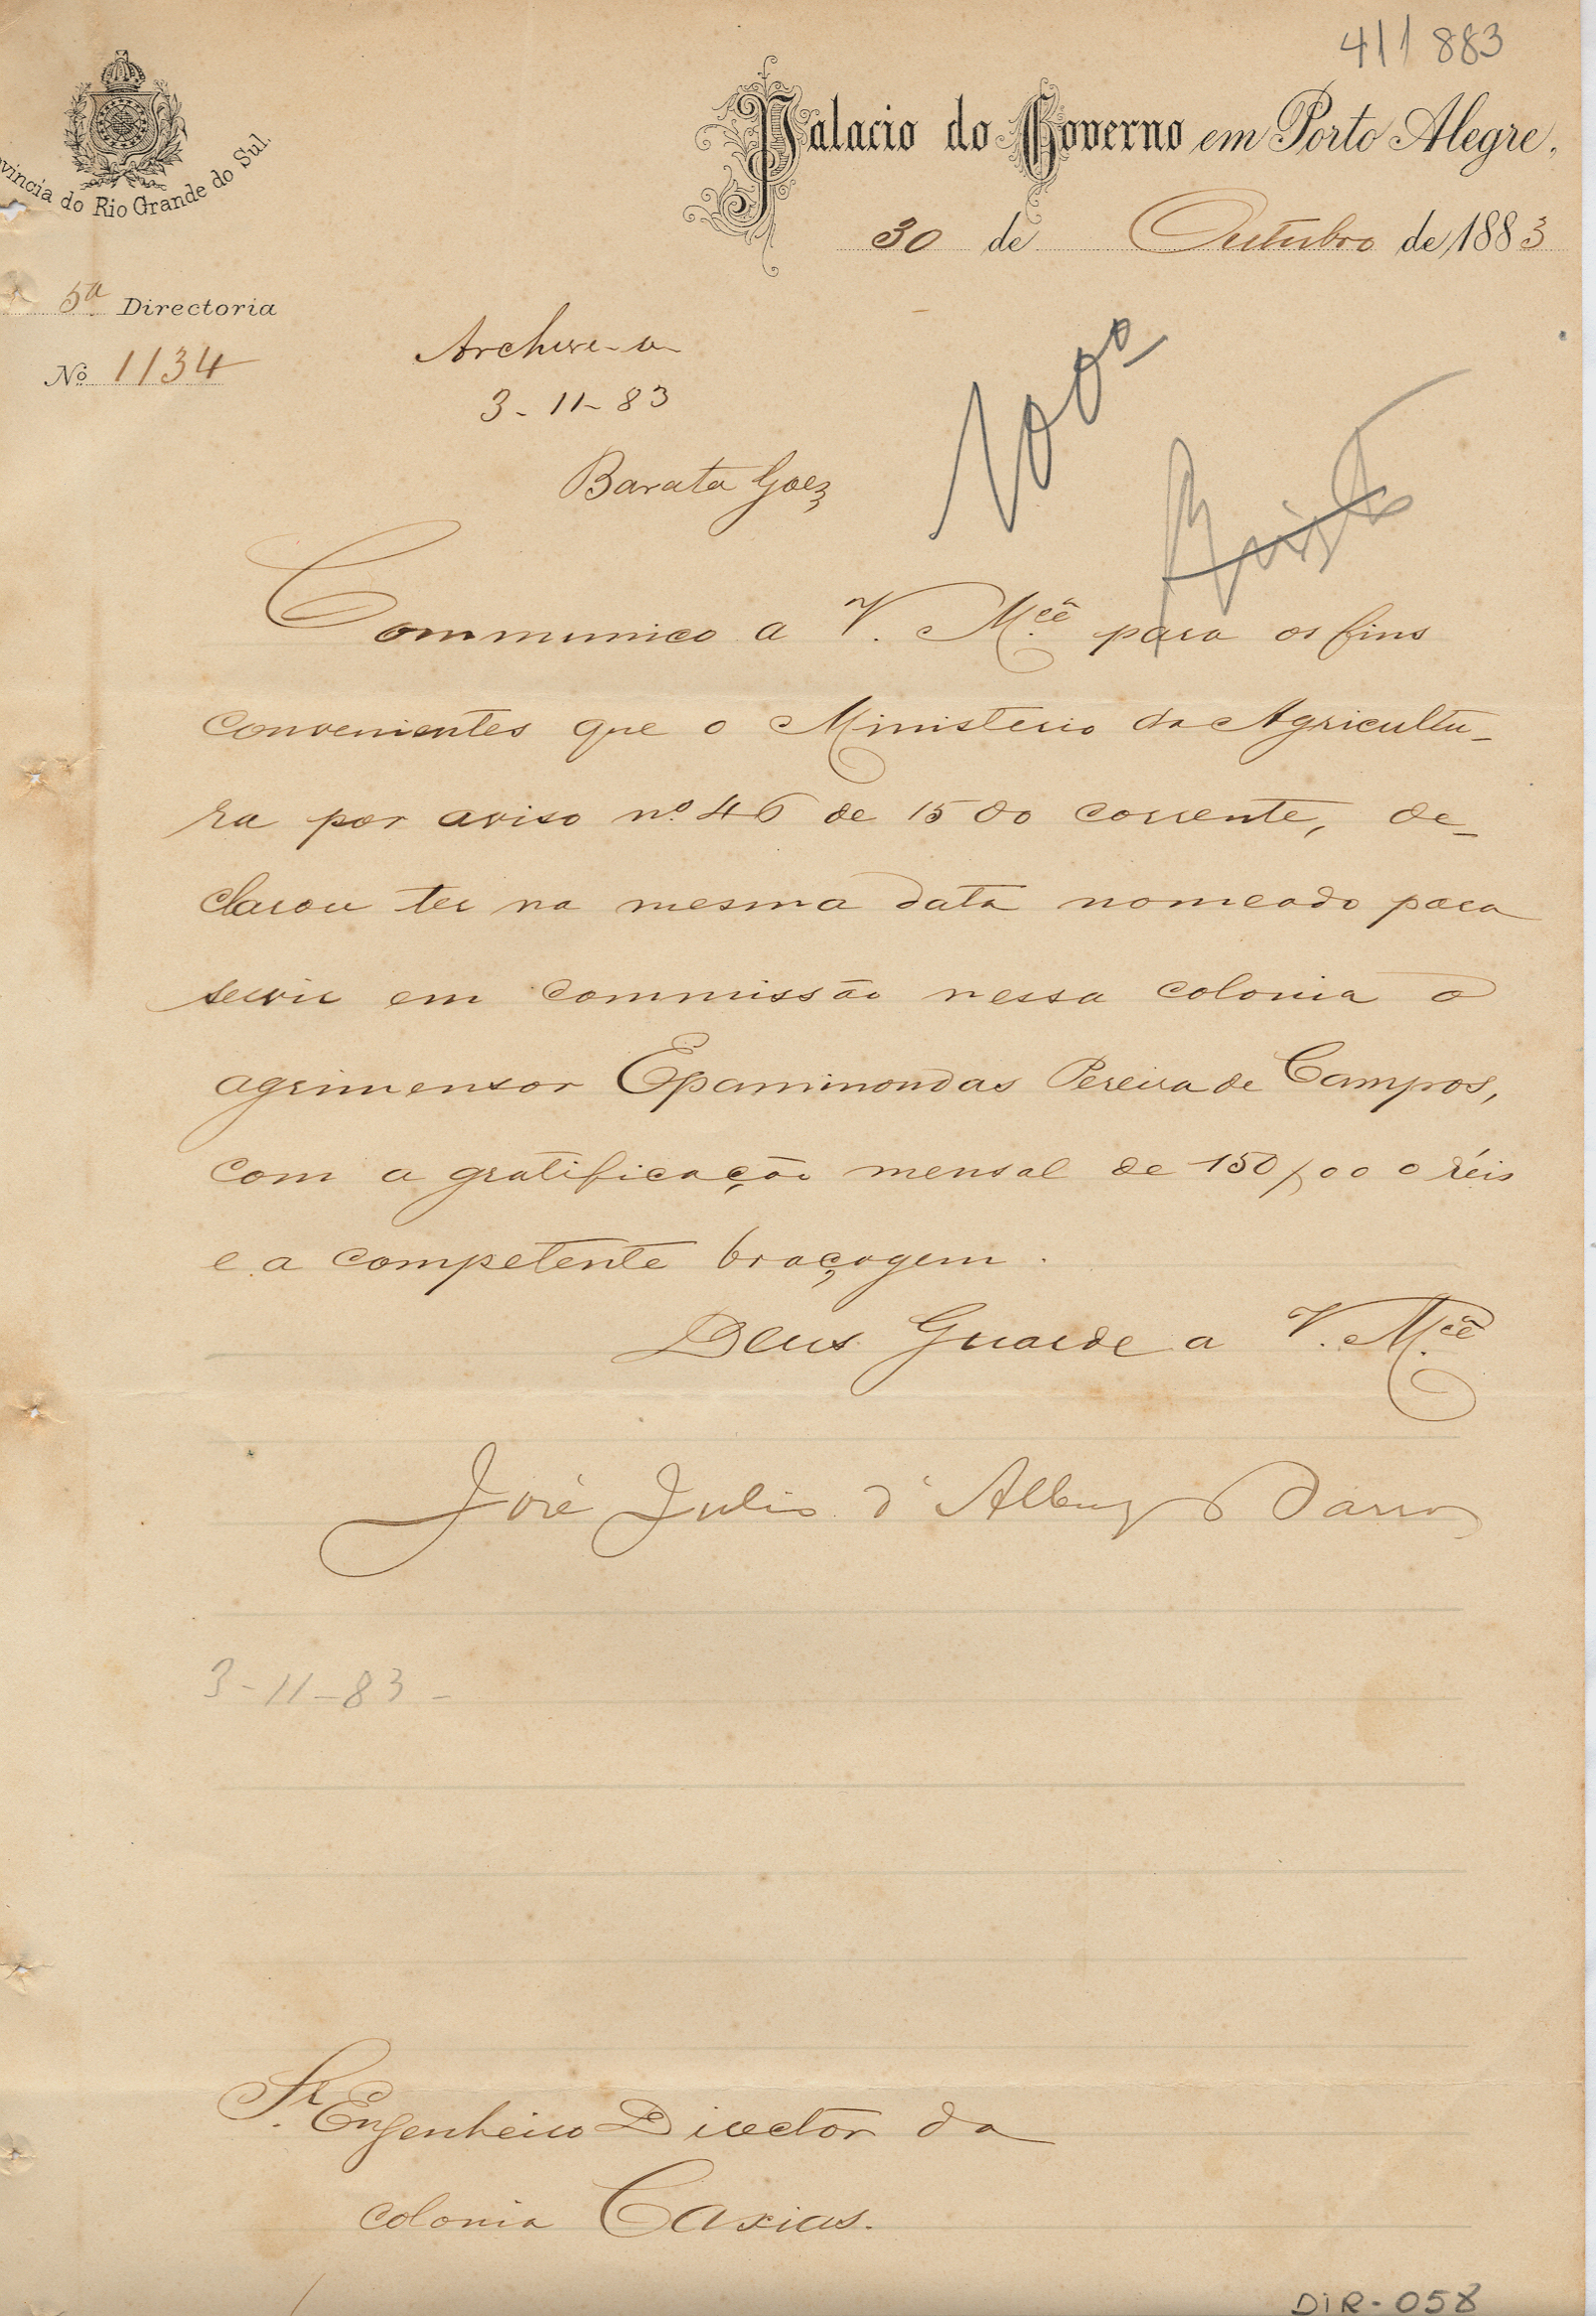 411 883
Palacio do Governo em Porto Alegre,
30 de Outubro de 1883
vincia do Rio Grande do Sul.
5ª Directoria
Nº 1134
Archive-se
3-11-83
Barata Goez
Communico a V. Mcê para os fins
convenientes que o Ministerio da Agricultu-
ra por aviso nº 46 de 15 do corrente, de-
clarou ter na mesma data nomeado para
servir em commissão nessa colonia o
agrimensor Epaminondas Pereira de Campos,
com a gratificação mensal de 150$000 réis
e a competente braçagem.
Deus Guarde a V. Mcê
José Julio d'Albuqe Barros
3-11-83-
Sr. Engenheiro Director da
colonia Caxias.
DIR-058